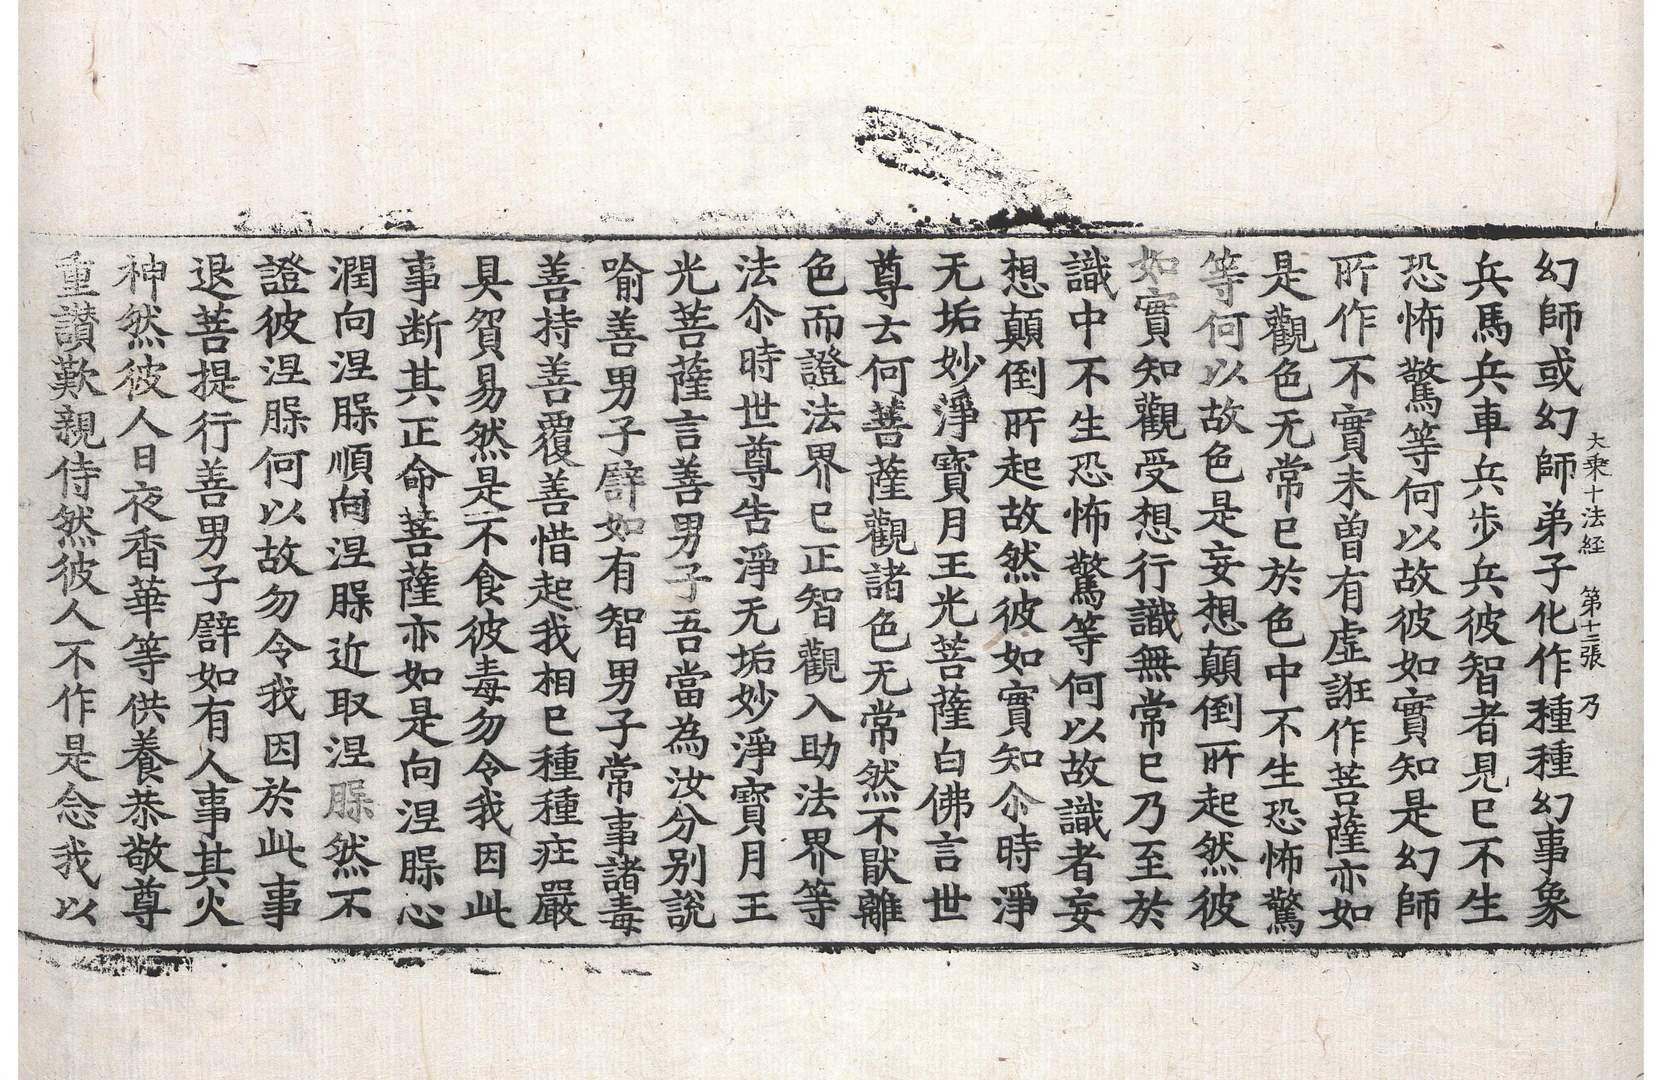 大乘十法経　第十三張　乃
幻師或幻師弟子化作種種幻事象
兵馬兵車兵步兵彼智者見已不生
恐怖驚等何以故彼如實知是幻師
所作不實未曾有虛誑作菩薩亦如
是觀色无常已於色中不生恐怖驚
等何以故色是妄想顛倒所起然彼
如實知觀受想行識無常已乃至於
識中不生恐怖驚等何以故識者妄
想顛倒所起故然彼如實知尒時淨
无垢妙淨寶月王光菩薩白佛言世
尊云何菩薩觀諸色无常然不猒離
色而證法界已正智觀入助法界等
法尒時世尊告淨无垢妙淨寶月王
光菩薩言善男子吾當為汝分别說
喻善男子譬如有智男子常事諸毒
善持善覆善惜起我相已種種庄嚴
具貿易然是不食彼毒勿令我因此
事断其正命菩薩亦如是向涅䏶心
潤向涅䏶順向涅䏶近取涅䏶然不
證彼涅䏶何以故勿令我因於此事
退菩提行善男子譬如有人事其火
神然彼人日夜香華等供養恭敬尊
重讃歎親侍然彼人不作是念我以